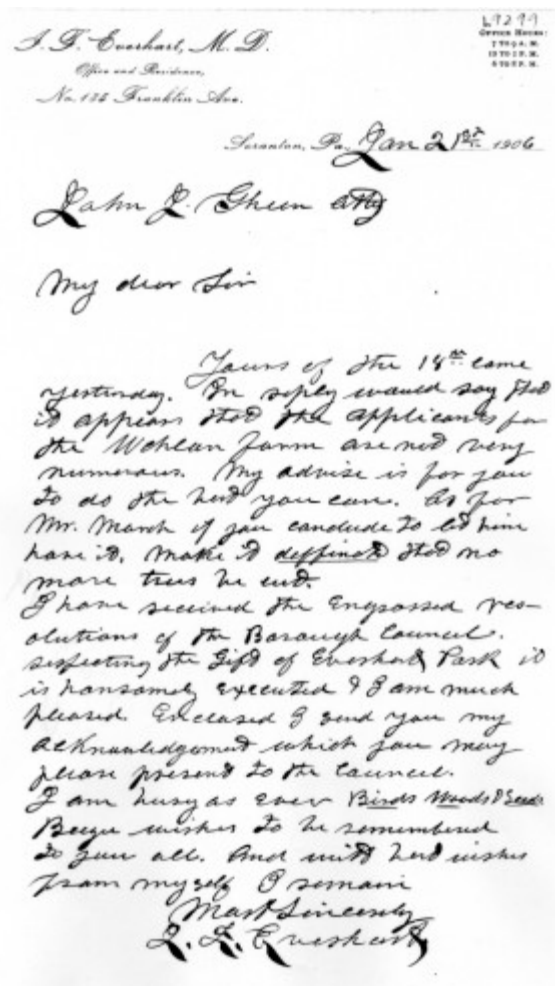 I. F. Everhart, M. D.
Office and Residence,
No. 135 Franklin Ave.
L9299
OFFICE HOURS:
7 TO 9 A. M.
Scranton, Pa. Jan 21st 1906
John J. Gheen atty
My dear Sir
Yours of the 18th came
yesterday. In reply would say that
it appears that the applicants for
the farm are not very
numerous. My advise is for you
to do the best you can. As for
Mr. March if you conclude to let him
have it, make it deffinate that no
more trees be cut.
I have received the Engrossed res-
olutions of the Borough Council.
respecting the Gift of Everhart Park it
is hansomely executed & I am much
pleased. Enclosed I send you my
acknowledgement which you may
please present to the Council.
I am busy as ever Birds Woods &
wishes to be remembered
to you all. And with best wishes
from myself I remain
Most Sincerely
I. F. Everhart